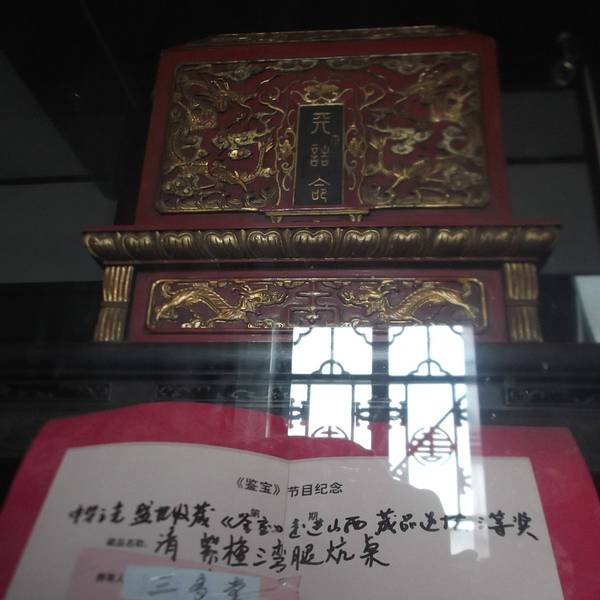 天誥命
《鉴宝》节目纪念
第 期
盛世收藏《鉴宝》走进山西 藏品选拔三等奖
藏品名称: 清 紫檀三湾腿炕桌
三多堂